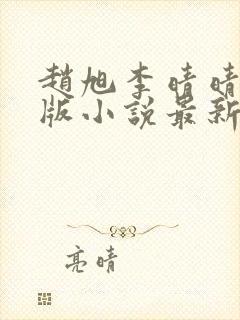 趙旭李晴晴
版小說最新
亮晴